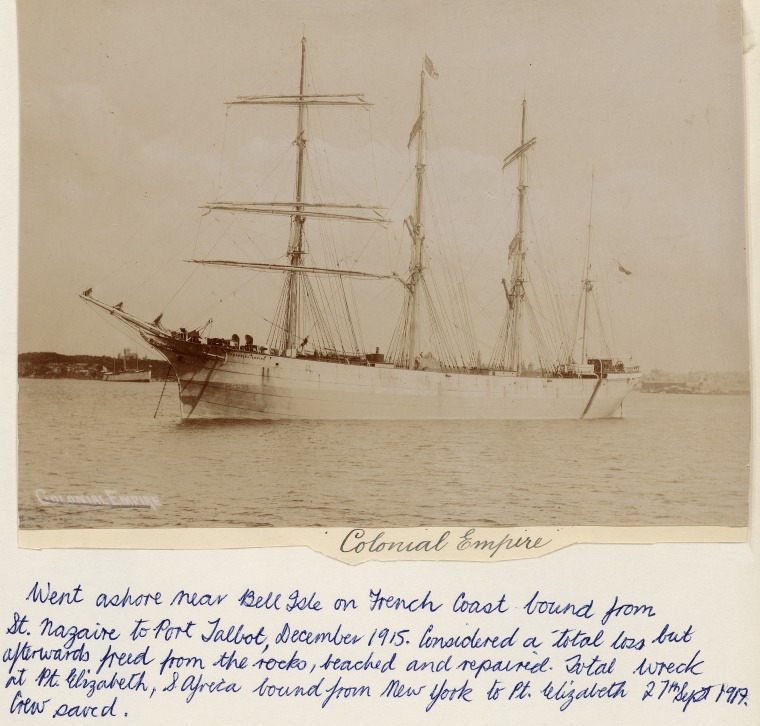 COLONIAL EMPIRE
Colonial Empire
Went ashore near Bell Isle on French Coast bound from
St. Nazaire to Port Talbot, December 1915. Considered a total loss but
afterwards freed from the rocks, beached and repaired. Total wreck
at Pt. Elizabeth, S Africa bound from New York to Pt. Elizabeth 27th Sept 1917.
Crew saved.